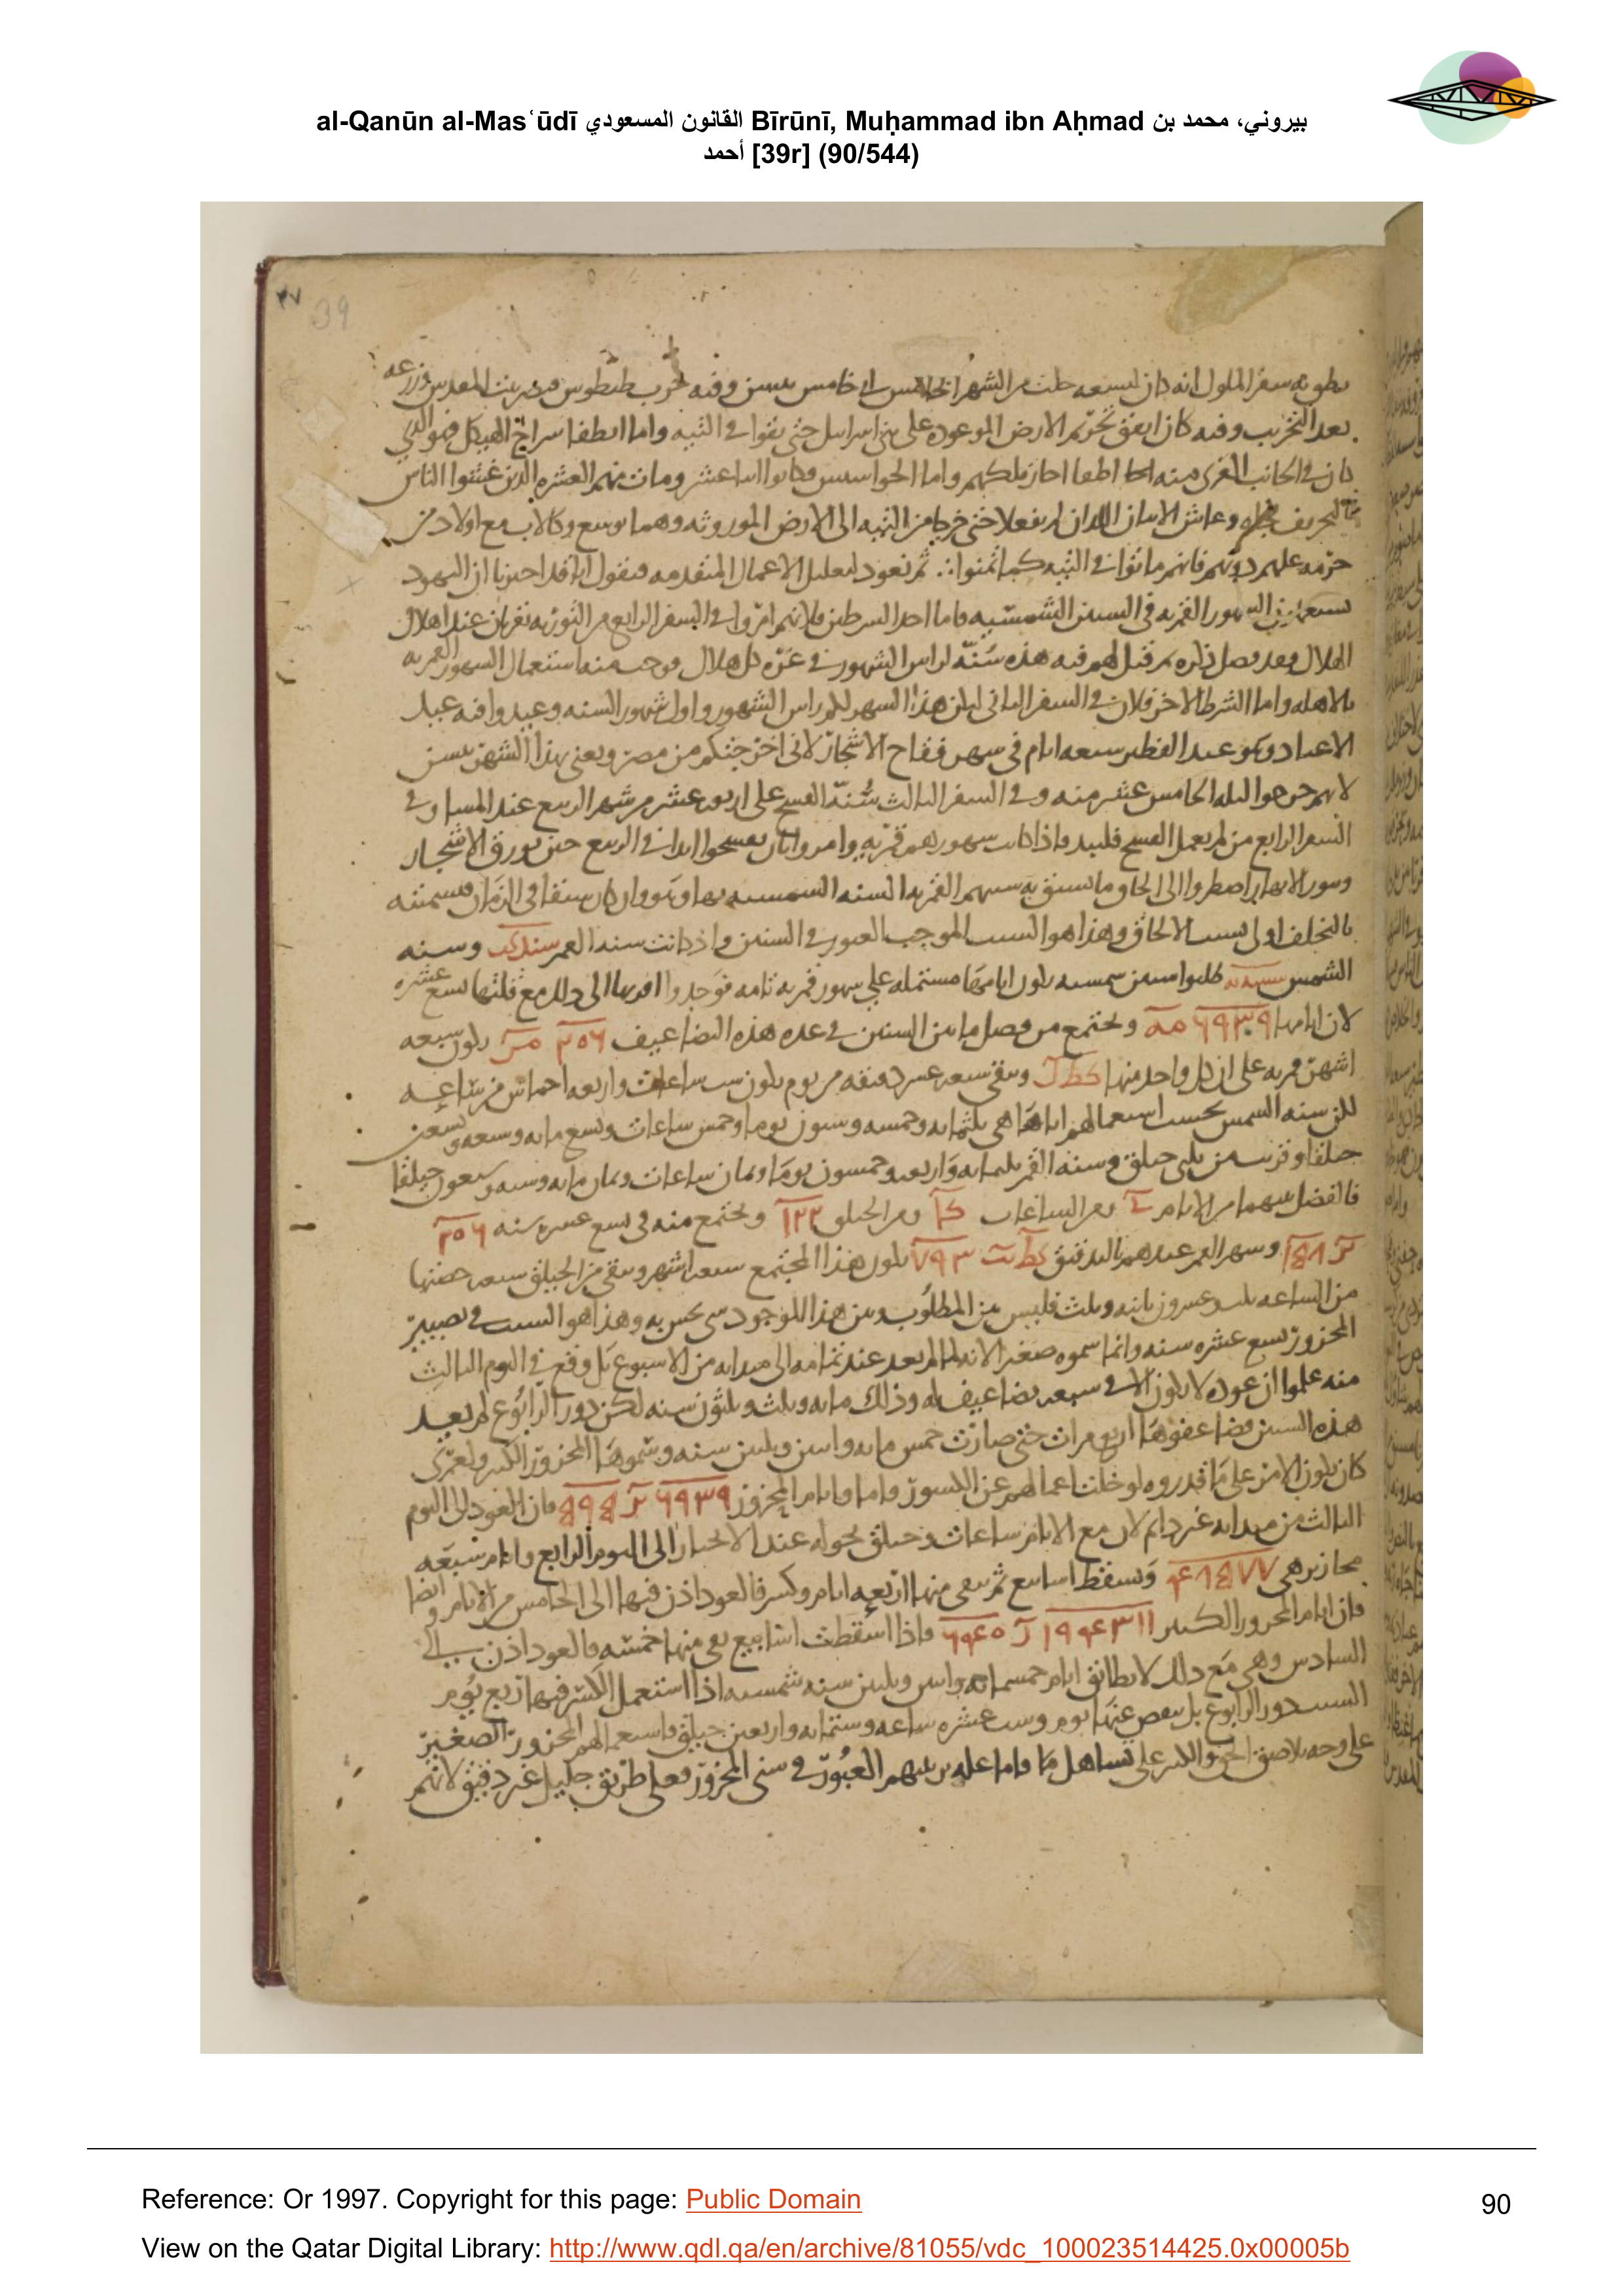 al-Qanūn al-Masʿūdī القانون المسعودي Bīrūnī, Muḥammad ibn Aḥmad بيروني، محمد بن
أحمد [39r] (90/544)
٣٧
39
سفر الملوك انه كان لسبعه خلت من الشهر الخامس وفيه خرب طيطوس بيت المقدس وزرعه
بعد التخريب وفيه كان اتفق تحريم الارض الموعوده على بني اسرايل حتى بقوا في التيه واما انطفا سراج الهيكل فهو الذي
كان في الجانب الغربي منه واما الجواسيس فكانوا اثنا عشر ومات منهم العشره الذين غشوا الناس
وعاش الاثنان اللذان لم يفعلا حتى خرجا من التيه الى الارض الموروثه وهما يوشع وكالاب مع اولاد من
حرمه عليهم دونهم فانهم ماتوا في التيه ثم نعود لتعليل الاعمال المتقدمه فنقول انا قد اخبرنا ان اليهود
الشهور القمريه في السنين الشمسيه فاما احد الشرطين فلانهم امروا في السفر الرابع من التوريه بقربان عند اهلال
الهلال وبعد فصل ذكره من قبل لهم فيه هذه سنه لراس الشهور في غره كل هلال فوجب منه استعمال الشهور القمريه
بالاهله واما الشرط الاخر فلان في السفر الثاني ليكن هذا الشهر لكم راس الشهور واول شهور السنه وعيدوا فيه عيد
الاعياد وهو عيد الفطير سبعه ايام في شهر فقاح الاشجار لاني اخرجتكم من مصر ويعني بهذا الشهر نيسن
لانهم خرجوا الليله الخامس عشر منه وفي السفر الثالث سنه الفسح على اربعه عشر من شهر الربيع عند المساء وفي
السفر الرابع من لم يعمل الفسح فليبد واذا كانت شهورهم قمريه وامروا بان يفسحوا ابدا في الربيع حين يورق الاشجار
اضطروا الى الحاق ما يسبق به سنتهم القمريه السنه الشمسيه بها وهو وان كان سبقا في الزمان فسميته
بالتخلف اولى بسبب الالحاق وهذا هو السبب الموجب العبور في السنين واذ كانت سنه القمر شند كب وسنه
الشمس طلبوا سنين شمسيه يكون ايامها مشتمله على شهور قمريه تامه فوجدوا اقربها الى ذلك مع قلتها تسع عشره
لان ايامها ٦٩٣٩ مه ويجتمع من فصل ما بين السنين في عده هذه التضاعيف ٢٠٦ يكون سبعه
اشهر قمريه على ان كل واحد منها كط ل ويبقى سبعه عشر دقيقه من يوم يكون ست ساعات واربعه اخماس من ساعه
لكن سنه الشمس بحسب استعمالهم اياها هي ثلثمايه وخمسه وستون يوما وخمس ساعات وتسع مايه وسبعه وتسعين
حلقا وسنه القمر ثلثمايه واربعه وخمسون يوما وثمان ساعات وثمان مايه وسته وسبعون حيلقا
فالفضل بينهما من الايام ي ومن الساعات كا ومن الحيلق ١٢٢ ويجتمع منه في تسع عشره سنه ٢٠٦
وشهر القمر عندهم بالتدقيق كط يب ٧٩٣ يكون هذا المجتمع سبعه اشهر ويبقى من الحيلق سبعه حصتها
من الساعه ثلث وعشرون ثانيه وثلث فليس بين المطلوب وبين هذا الموجود شي يحس به وهذا هو السبب في تصيير
المحزور تسع عشره سنه وانما سموه صغيرا لانه لما لم يعد عند تمامه الى مبدايه من الاسبوع بل وقع في اليوم الثالث
منه علموا ان عوده لا يكون الا في سبعه تضاعيف له وذلك مايه وثلث وثلثون سنه لكن دور الرابوع لم يعد
هذه السنين فضاعفوها اربع مرات حتى صارت خمس مايه واثنين وثلثين سنه وسموها المحزور الكبير ولعمري
كان يكون الامر على ما قدروه لو خلت اعمالهم عن الكسور فاما وايام المحزور ٦٩٣٩ يو ٥٩٥ فان العود الى اليوم
الثالث من مبدايه غير دايم لان مع الايام ساعات وحيلق يحوله عند الانجبار الى اليوم الرابع وايام سبعه
محازير هي ٤٨٥٧٧ وتسقط اسابيع ثم يبقى منها اربعه ايام وكسر فالعود اذن فيها الى الخامس من الايام وايضا
فان ايام المحزور الكبير ١٩٤٣١١ فاذا اسقطت اسابيع بقي منها خمسه فالعود اذن الى
السادس وهي مع ذلك لا يطابق ايام خمسمايه واثنين وثلثين سنه شمسيه اذا استعمل الكسر فيها اربع يوم
بل ينقص عنها يوم وست عشره ساعه وستمايه واربعين حيلق فاستعمالهم المحزور الصغير
على تساهل ما فاما علله ترتيبهم العبور في سني المحزور فعلى طريق جليل غير دقيق لانهم
Reference: Or 1997. Copyright for this page: Public Domain
90
View on the Qatar Digital Library: http://www.qdl.qa/en/archive/81055/vdc_100023514425.0x00005b